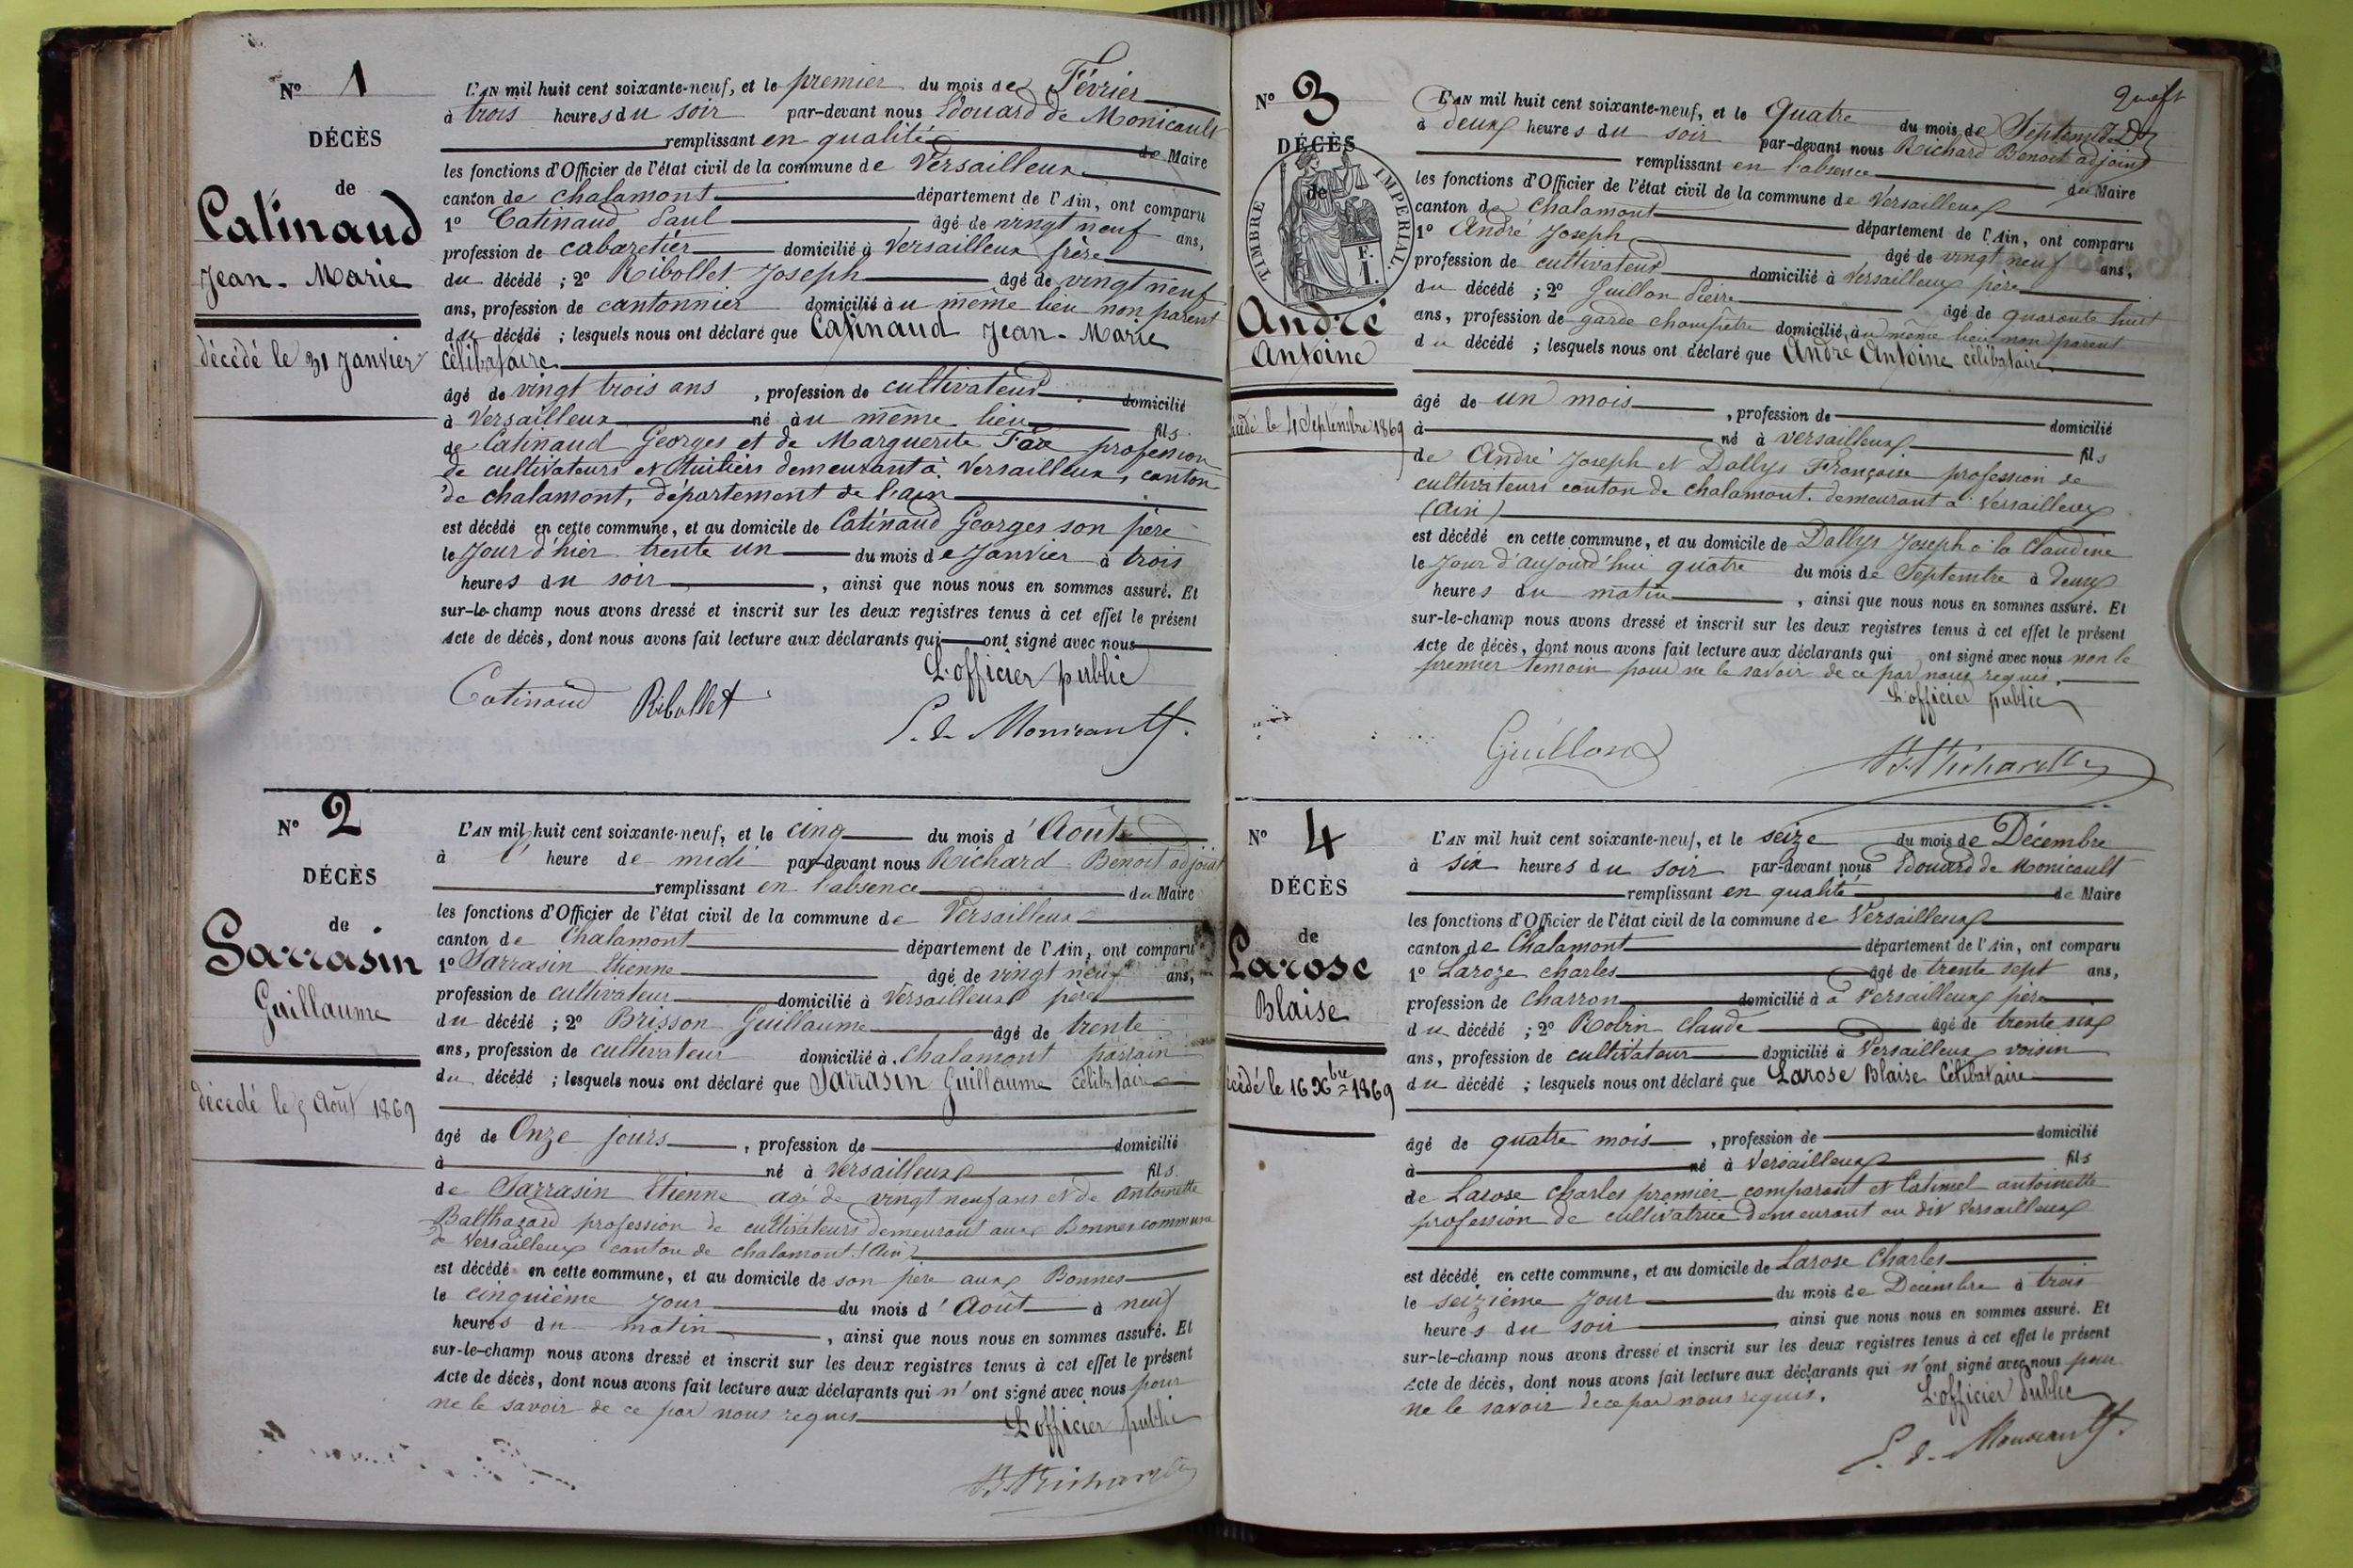 N° 1
DÉCÈS
de
Catinaud
Jean-Marie
décédé le 31 Janvier
L'AN mil huit cent soixante-neuf, et le premier du mois de Février
à trois heures du soir par-devant nous Edouard de Monicault
remplissant en qualité de Maire
les fonctions d'Officier de l'état civil de la commune de Versailleux
canton de chalamont département de l'Ain, ont comparu
1° Catinaud Paul âgé de vingt neuf ans,
profession de cabaretier domicilié à Versailleux frère
du décédé ; 2° Ribollet Joseph âgé de vingt neuf
ans, profession de cantonnier domicilié au même lieu non parent
du décédé ; lesquels nous ont déclaré que Catinaud Jean-Marie
célibataire
âgé de vingt trois ans , profession de cultivateur domicilié
à Versailleux né au même lieu fils
de Catinaud Georges et de Marguerite Fax profession
de cultivateurs et tuiliers demeurant à Versailleux, canton
de chalamont, département de l'ain
est décédé en cette commune, et au domicile de Catinaud Georges son père
le Jour d'hier trente un du mois de Janvier à trois
heures du soir , ainsi que nous nous en sommes assuré. Et
sur-le-champ nous avons dressé et inscrit sur les deux registres tenus à cet effet le présent
Acte de décès, dont nous avons fait lecture aux déclarants qui ont signé avec nous
L'officier public
Catinaud Ribollet
E. de Monicault.
N° 2
DÉCÈS
de
Sarrasin
Guillaume
décédé le 5 Août 1869
L'AN mil huit cent soixante-neuf, et le cinq du mois d'Août
à l' heure de midi par-devant nous Richard Benoit adjoint
remplissant en l'absence du Maire
les fonctions d'Officier de l'état civil de la commune de Versailleux
canton de Chalamont département de l'Ain, ont comparu
1° Sarrasin Etienne âgé de vingt neuf ans,
profession de cultivateur domicilié à Versailleux père
du décédé ; 2° Brisson Guillaume âgé de trente
ans, profession de cultivateur domicilié à Chalamont parrain
du décédé ; lesquels nous ont déclaré que Sarrasin Guillaume célibataire
âgé de Onze jours , profession de domicilié
à né à Versailleux fils
de Sarrasin Etienne agé de vingt neuf ans et de Antoinette
Balthazard profession de cultivateurs demeurant aux Bonnes commune
de Versailleux canton de chalamont (Ain)
est décédé en cette commune, et au domicile de son père aux Bonnes
le cinquième jour du mois d'Août à neuf
heures du matin , ainsi que nous nous en sommes assuré. Et
sur-le-champ nous avons dressé et inscrit sur les deux registres tenus à cet effet le présent
Acte de décès, dont nous avons fait lecture aux déclarants qui n'ont signé avec nous pour
ne le savoir de ce par nous requis
L'officier public
N° 3
DÉCÈS
de
TIMBRE IMPERIAL.
F. 1.
André
Antoine
décédé le 4 Septembre 1869
L'AN mil huit cent soixante-neuf, et le Quatre du mois de Septembre
à deux heures du soir par-devant nous Richard Benoit adjoint
remplissant en l'absence du Maire
les fonctions d'Officier de l'état civil de la commune de Versailleux
canton de Chalamont département de l'Ain, ont comparu
1° André Joseph âgé de vingt neuf ans,
profession de cultivateur domicilié à Versailleux père
du décédé ; 2° Guillon Pierre âgé de quarante huit
ans, profession de garde champêtre domicilié au même lieu non parent
du décédé ; lesquels nous ont déclaré que André Antoine célibataire
âgé de un mois , profession de domicilié
à né à versailleux fils
de André Joseph et Dallys Françoise profession de
cultivateurs canton de chalamont. demeurant à Versailleux
(Ain)
est décédé en cette commune, et au domicile de Dallys Joseph à la Claudine
le Jour d'aujourd'hui quatre du mois de Septembre à deux
heures du matin , ainsi que nous nous en sommes assuré. Et
sur-le-champ nous avons dressé et inscrit sur les deux registres tenus à cet effet le présent
Acte de décès, dont nous avons fait lecture aux déclarants qui ont signé avec nous non le
premier témoin pour ne le savoir de ce par nous requis.
L'officier public
Guillon
N° 4
DÉCÈS
de
Larose
Blaise
décédé le 16 Xbre 1869
L'AN mil huit cent soixante-neuf, et le seize du mois de Décembre
à six heures du soir par-devant nous Edouard de Monicault
remplissant en qualité de Maire
les fonctions d'Officier de l'état civil de la commune de Versailleux
canton de Chalamont département de l'Ain, ont comparu
1° Laroze charles âgé de trente sept ans,
profession de charron domicilié à à Versailleux père
du décédé ; 2° Robin Claude âgé de trente six
ans, profession de cultivateur domicilié à Versailleux voisin
du décédé ; lesquels nous ont déclaré que Larose Blaise Célibataire
âgé de quatre mois , profession de domicilié
à né à Versailleux fils
de Larose Charles premier comparant et Catimel antoinette
profession de cultivatrice demeurant au dit Versailleux
est décédé en cette commune, et au domicile de Larose Charles
le seizième jour du mois de Décembre à trois
heures du soir ainsi que nous nous en sommes assuré. Et
sur-le-champ nous avons dressé et inscrit sur les deux registres tenus à cet effet le présent
Acte de décès, dont nous avons fait lecture aux déclarants qui n'ont signé avec nous pour
ne le savoir de ce par nous requis.
L'officier Public
E. de Monicault.